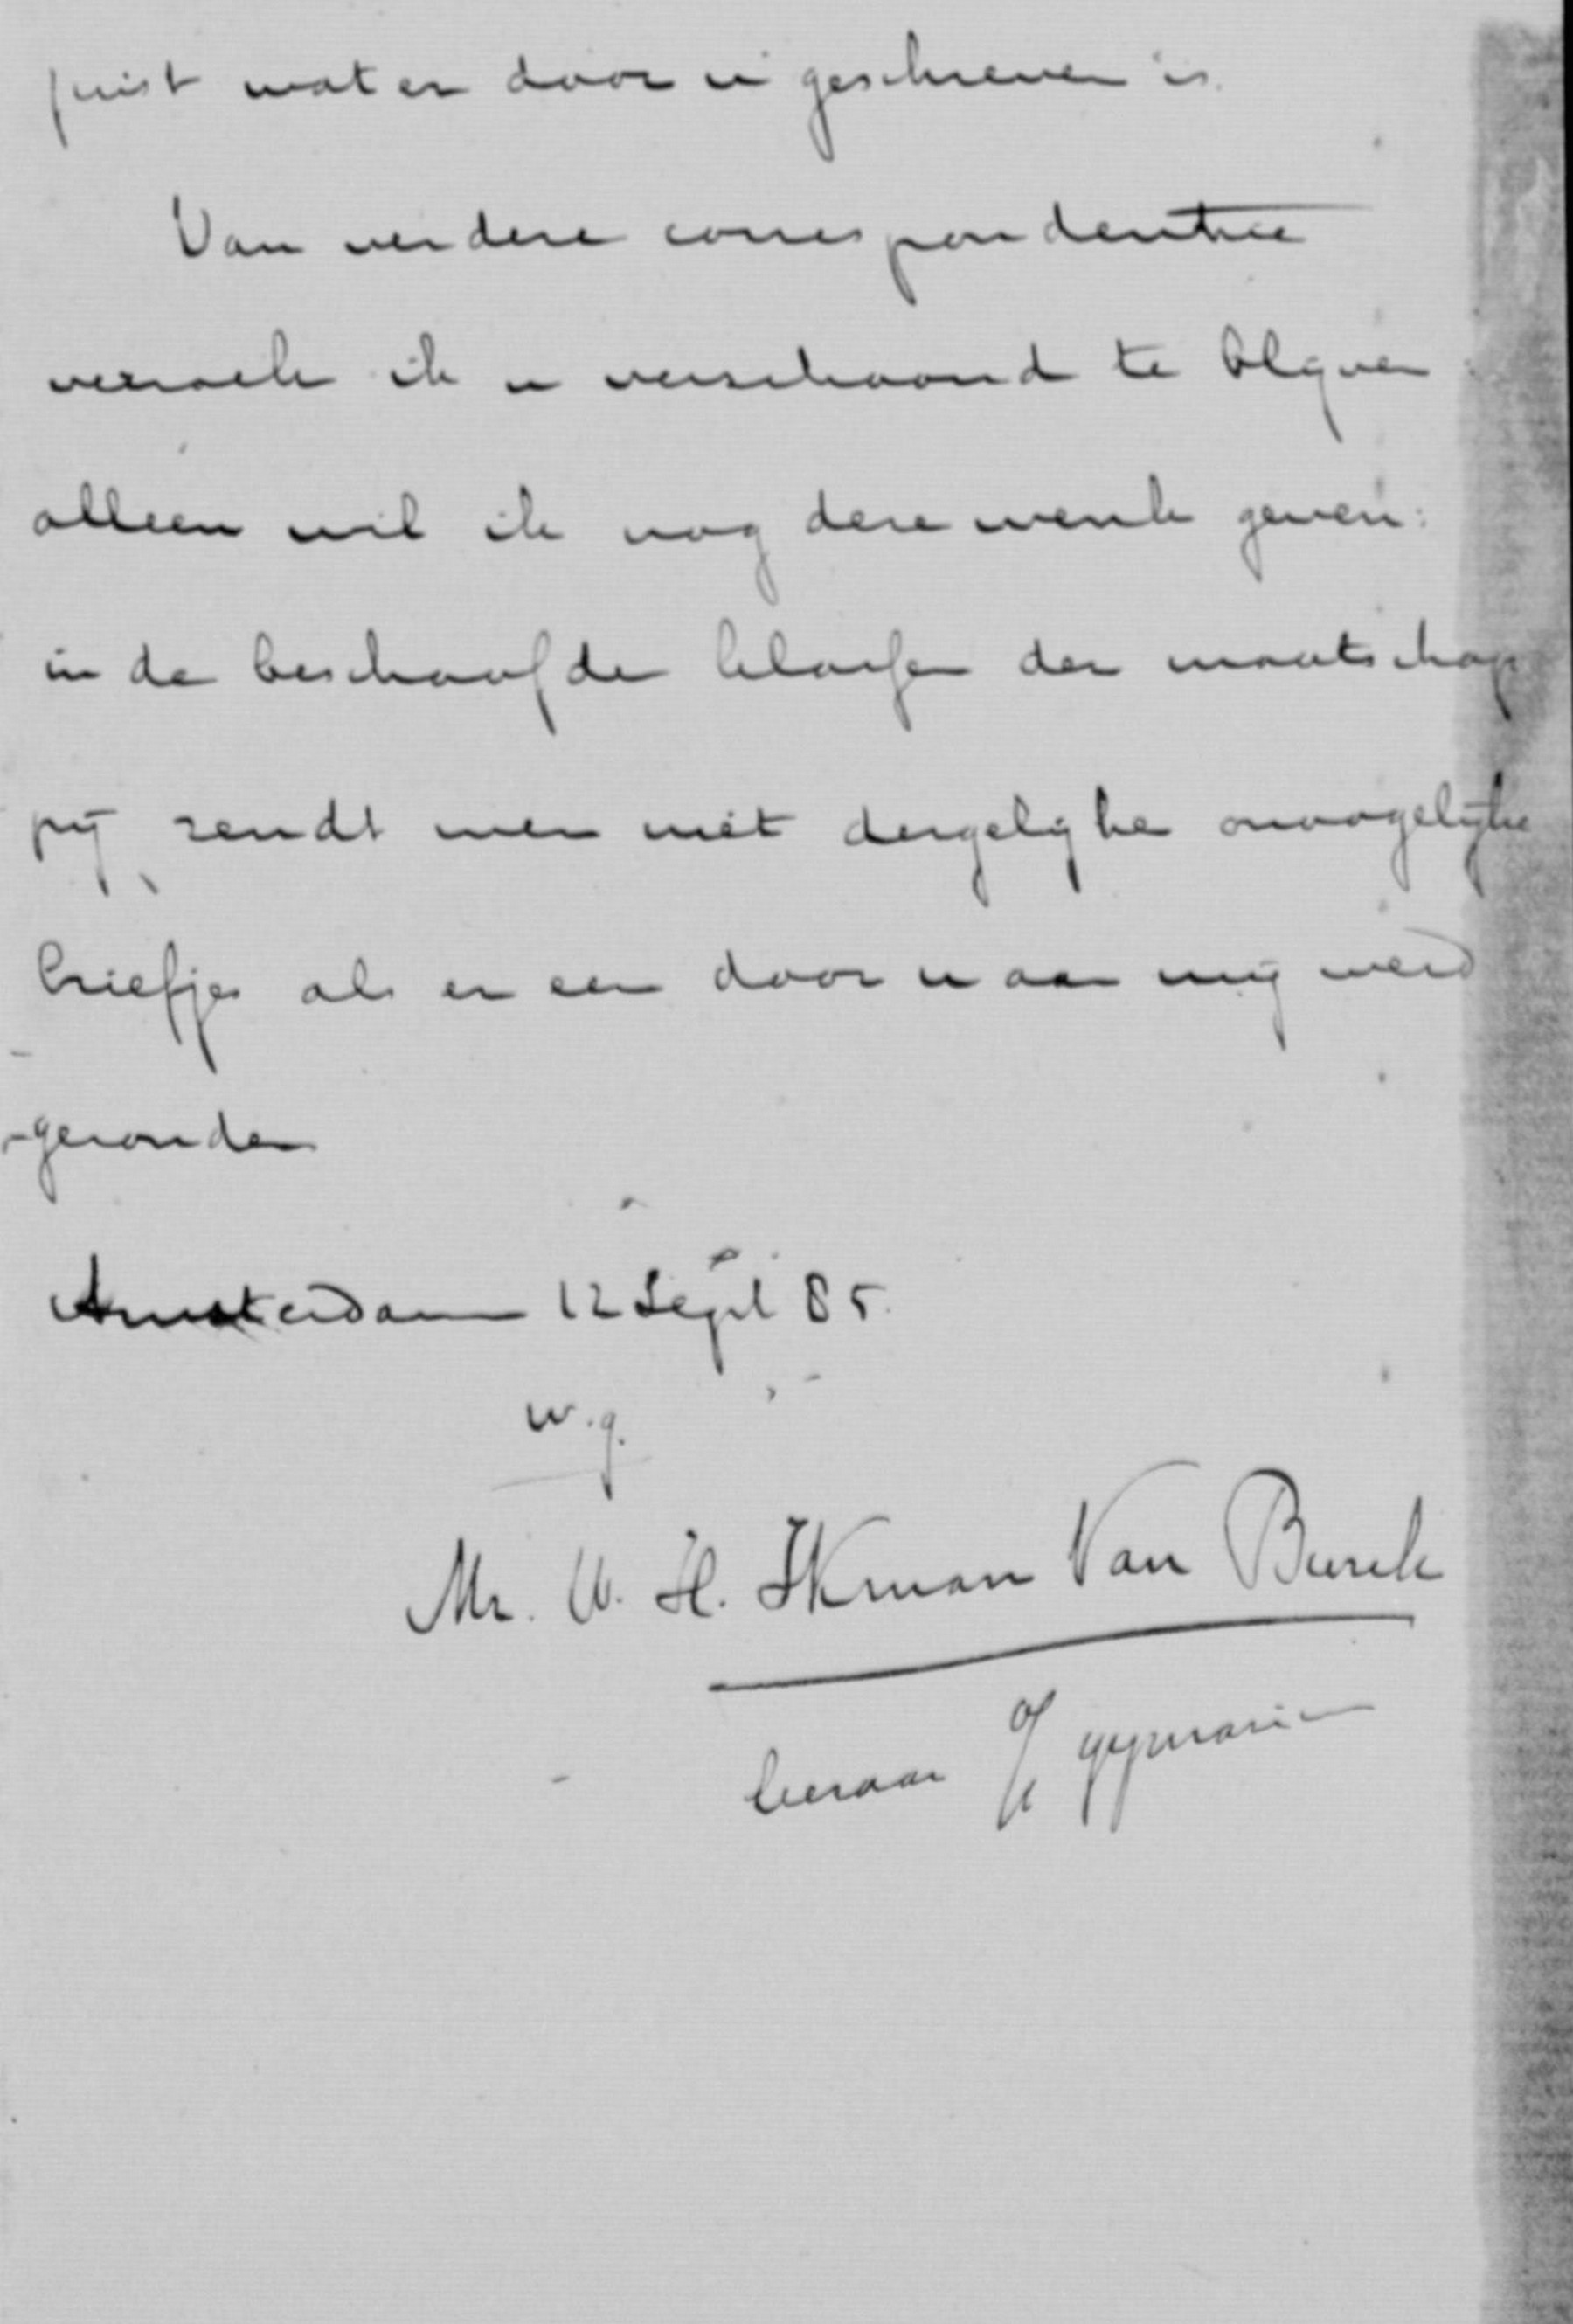 juist wat er door u geschreven is.
Van verdere correspondentie
verzoek ik u verschoond te blijven
alleen wil ik nog deze wenk geven:
in de beschaafde klassen der maatschap
pij zendt men niet dergelijke onoogelijke
briefjes als er een door u aan mij werd
gezonden
Amsterdam 12 Sept 85.
w.g.
Mr. W. H. Van
leeraar gymnasium